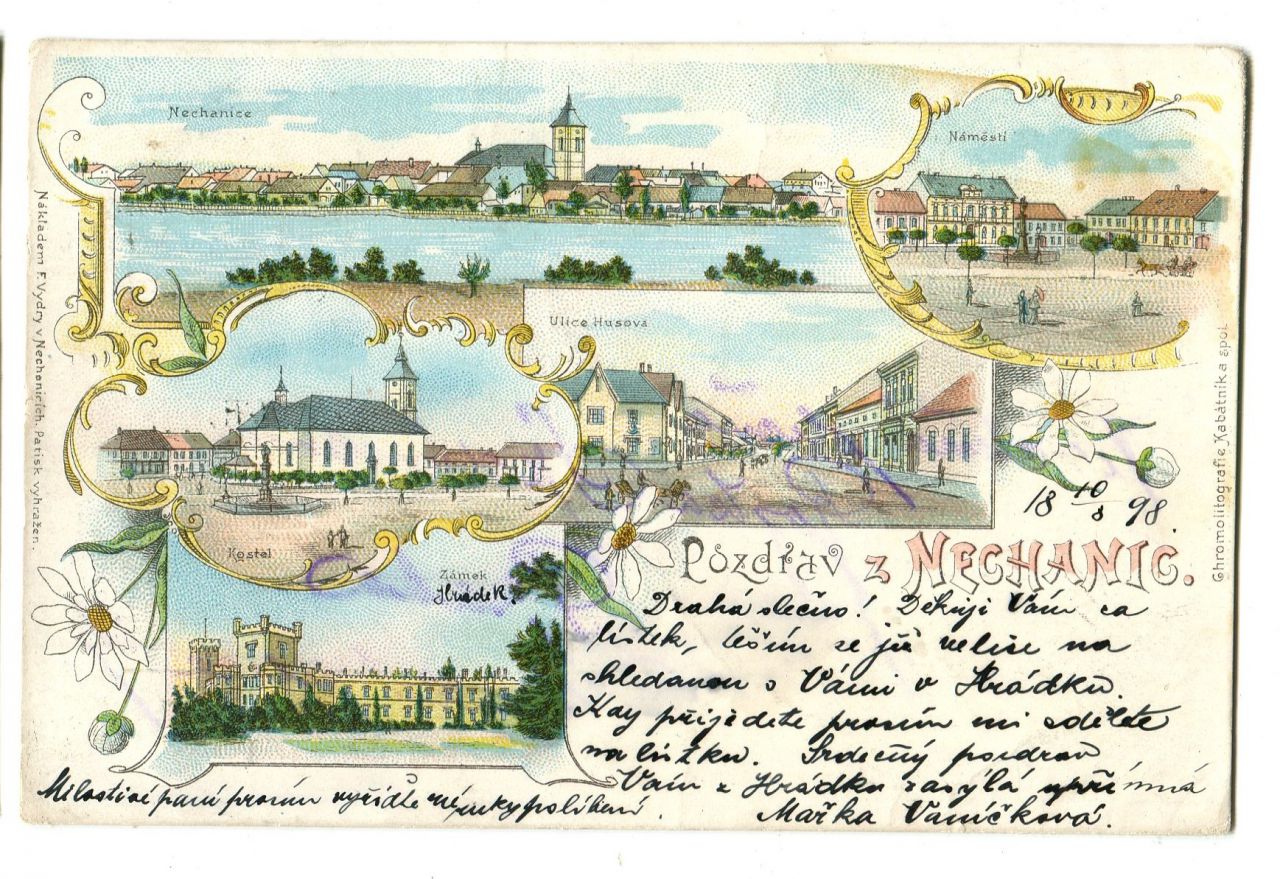 Nechanice
Náměstí
Ulice Husova
Kostel
Zámek
Hrádek.
Nákladem F. Vydry v Nechanicích. Patisk vyhražen.
Chromolitografie Kabátníka & spol.
18 10/8 98.
Pozdrav z NECHANIC.
Drahá slečno! Děkuji Vám za
lístek, těším se již velice na
shledanou s Vámi v Hrádku.
Kdy přijedete prosím mi sdělete
na lístku. Srdečný pozdrav
Vám z Hrádku zasýlá upřímná
Mařka Vaníčková.
Milostivé paní prosím vyřiďte né ruky políbení.